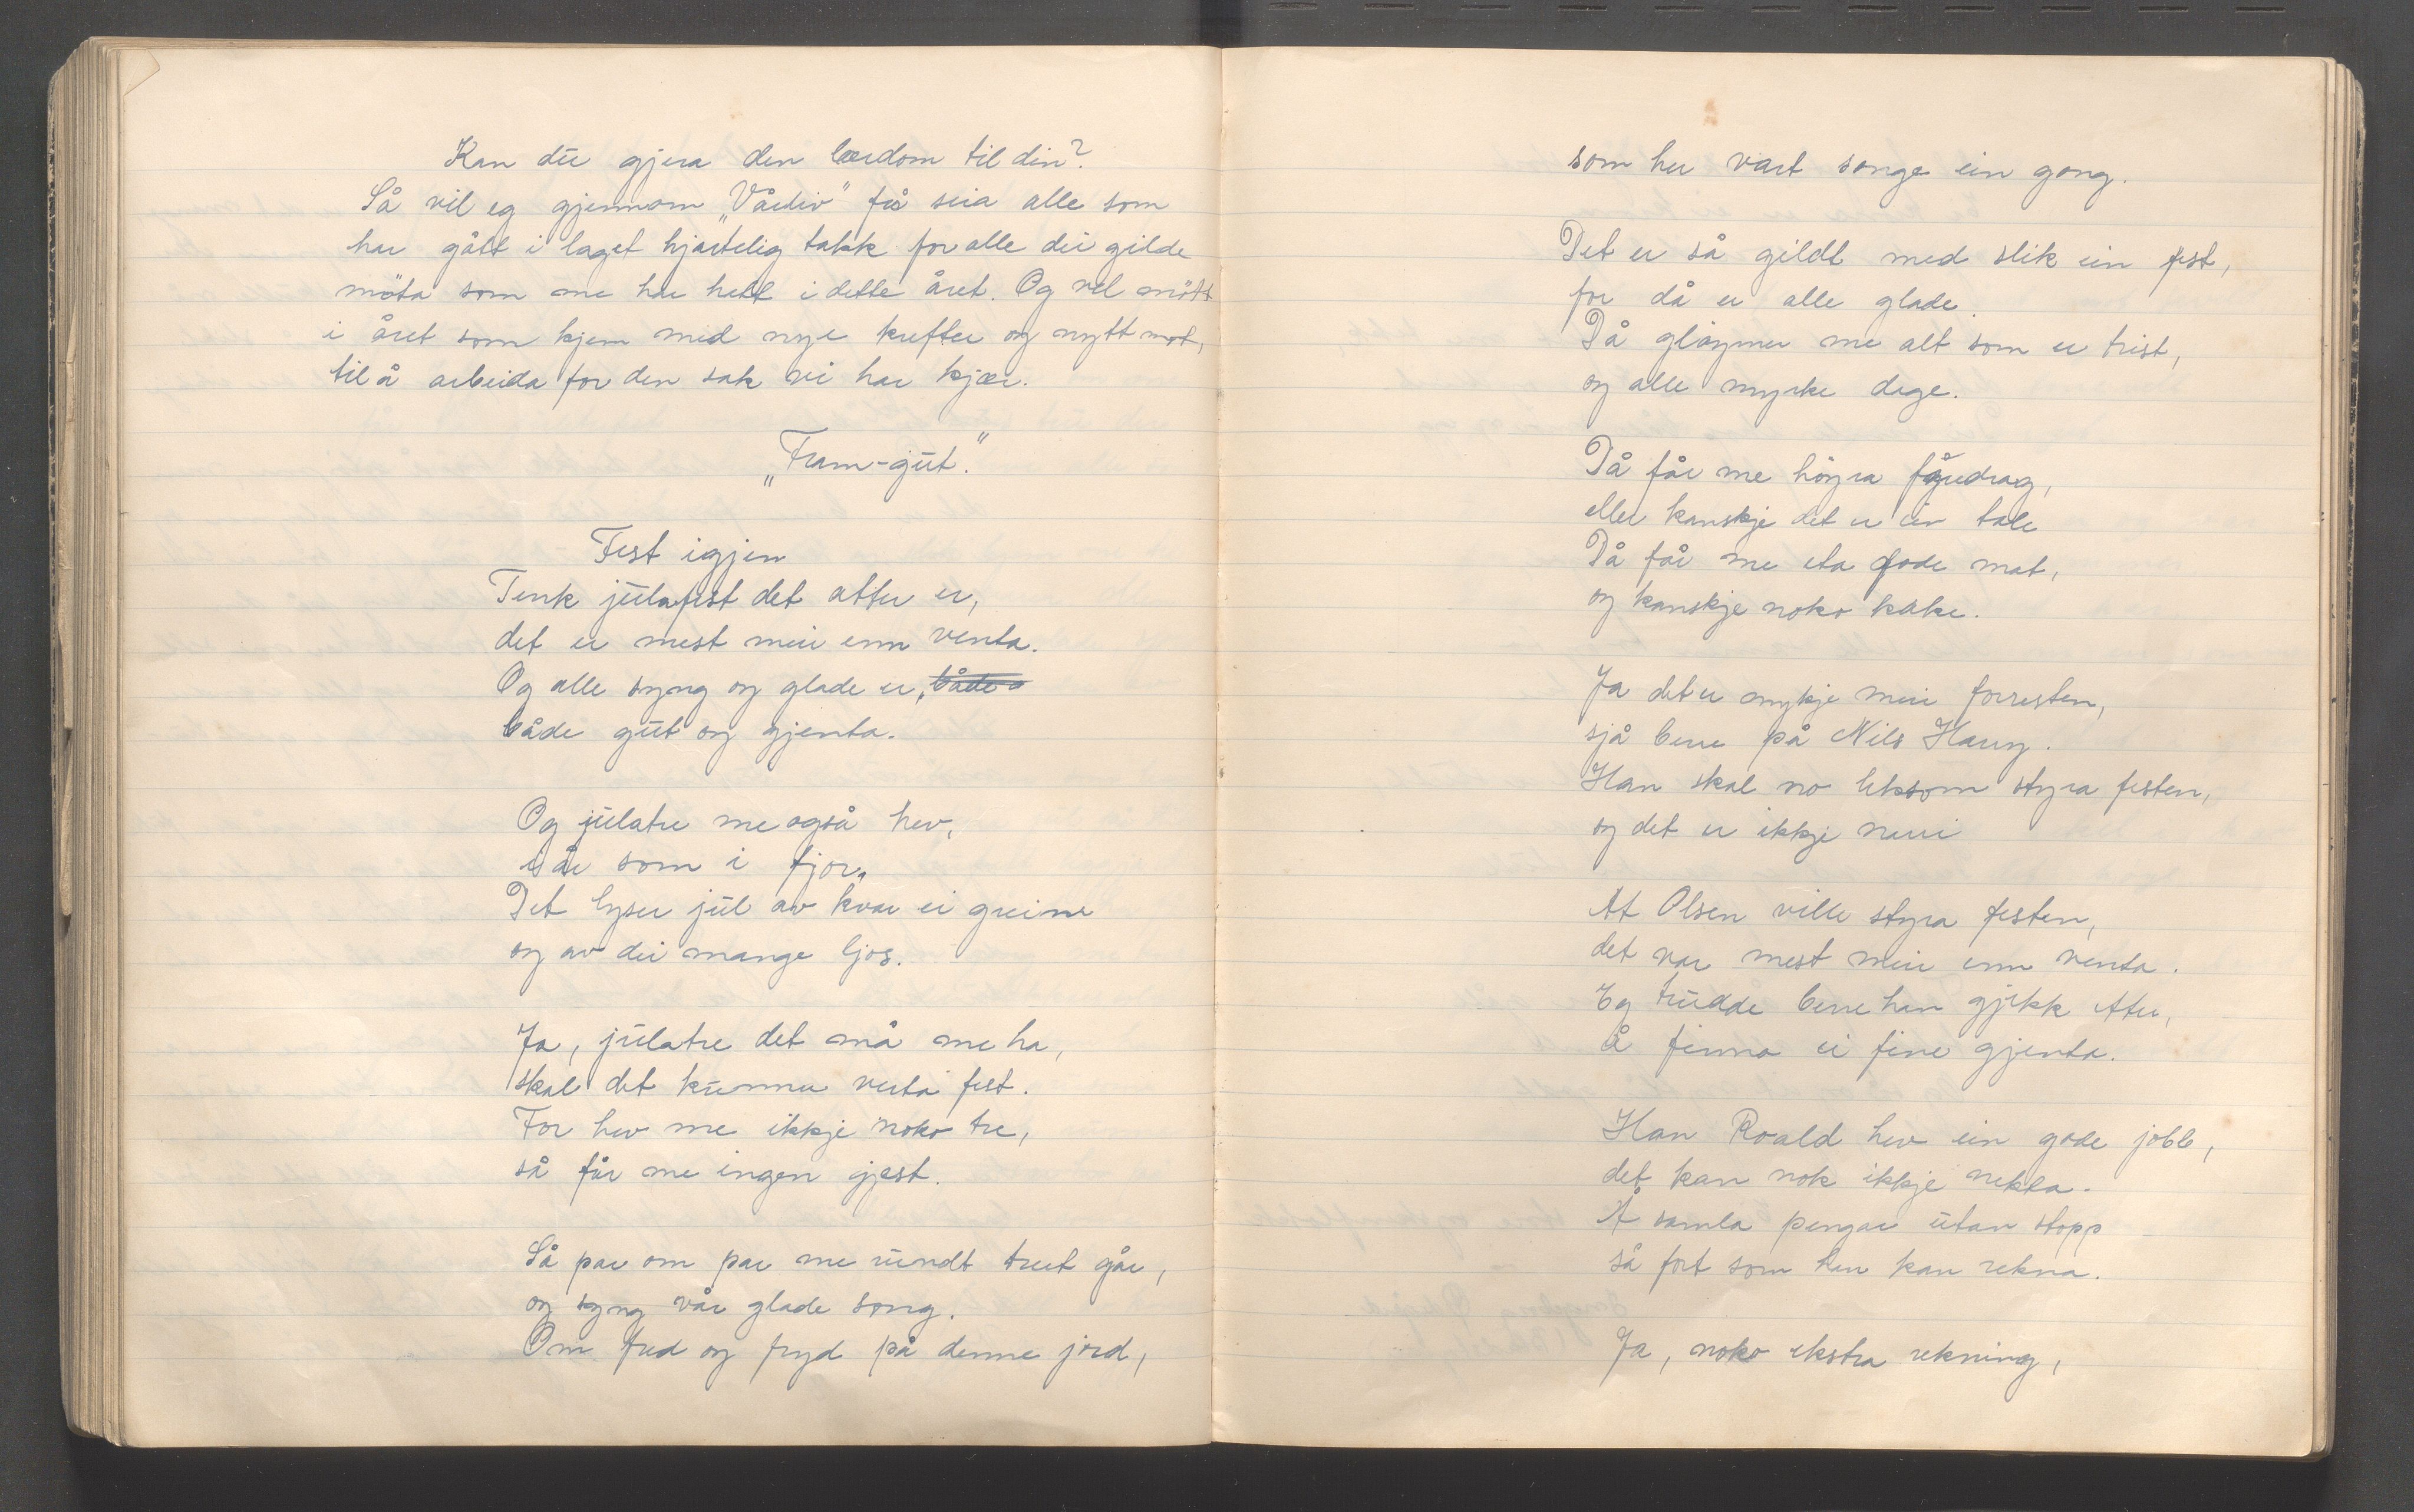 Kan du gjera den lærdom til din?
Så vil eg gjennom „Vårliv" få seia alle som
har gått i laget hjartelig takk for alle dei gilde
möta som me har helt i dette året. Og vel mött
i året som kjem med nye krefter og nytt mot,
til å arbeida for den sak vi har kjær.
„Fram-gut."
Fest igjen
Tenk julafest det atter er,
det er mest meir enn venta.
Og alle syng og glade er, både
både gut og gjenta.
Og julatre me også hev,
i år som i fjor.
Det lyser jul av kvar ei greine
og av dei mange ljos.
Ja, julatre det må me ha,
skal det kunna verta fest.
For hev me ikkje noko tre,
så får me ingen gjest.
Så par om par me rundt treet går,
og syng vår glade song.
Om fred og fryd på denne jord,
som her vart songe ein gong.
Det er så gildt med slik ein fest,
for då er alle glade.
Då glöymer me alt som er trist,
og alle myrke dage.
Då får me höyra föredrag,
eller kanskje det er ein tale
Då får me eta gode mat,
og kanskje noko kake.
Ja det er mykje meir forresten,
sjå berre på Nils Haug.
Han skal no liksom styra festen,
og det er ikkje narri
At Olsen ville styra festen,
det var mest meir enn venta.
Eg trudde berre han gjekk etter,
å finna ei fine gjenta.
Han Roald hev ein gode jobb,
det kan nok ikkje nekta.
Å samla pengar utan stopp
så fort som han kan rekna.
Ja, noko ekstra rekning,